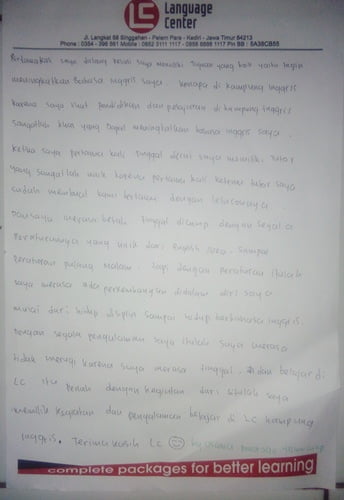 Language
Center
Jl. Langkat 88 Singgahan - Palem Pare - Kediri - Jawa Timur 64213
Phone : 0354 - 396 561 Mobile : 0852 3111 1117 - 0856 1117 Pin BB :
saya datang kesini saya memiliki tujuan yang baik yaitu ingin
meningkatkan Bahasa Inggris saya. kenapa di kampung inggris
karena saya lihat pendidikan dan pelajaran di kampung inggris
sangatlah luas yang dapat meningkatkan bahasa inggris saya.
ketika saya pertama kali tinggal disini saya memiliki tutor
yang sangatlah unik karena pertama kali ketemu tutor saya
sudah membuat kami tertawa dengan
Dan saya merasa betah tinggal dicamp dengan segala
Peraturannya yang unik dari english area sampai
Peraturan pulang malam. tapi dengan peraturan itulah
saya merasa ada perkembangan didalam diri saya
mulai dari hidup disiplin sampai hidup berbahasa inggris.
Dengan segala pengalaman saya itulah saya merasa
tidak merugi karena saya merasa tinggal dan belajar di
LC itu penuh dengan kegiatan dari situlah saya
memilik kegiatan dan pengalaman belajar di LC kampung
inggris. Terima kasih LC
complete packages for better learning